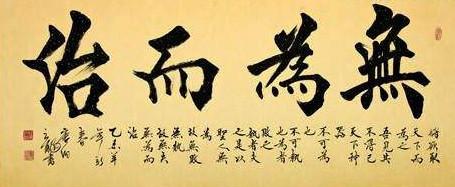 無為而治
將欲取
天下而
為之
吾見其
不得已
天下神
器
不可為
也
不可執
也為者
敗之
執者失
之是以
聖人無
為
故無敗
無執
故無失
無為而
治
乙未羊
年新
春
書